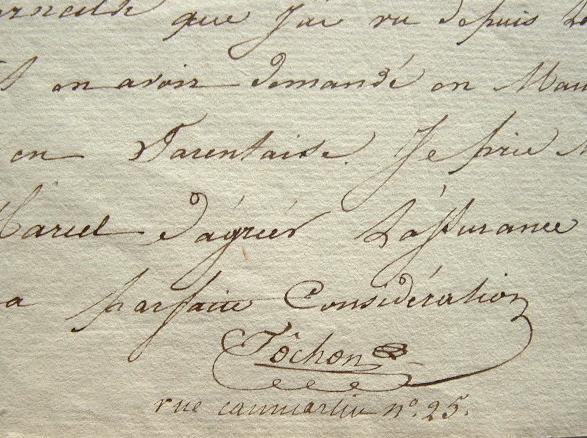 que j'ai vu depuis
en avoir demandé en Mau
en Tarentaise. Je prie
Marcel d'agréer L'assurance
a parfaite Considération
Tôchon
rue caumartin n°. 25.